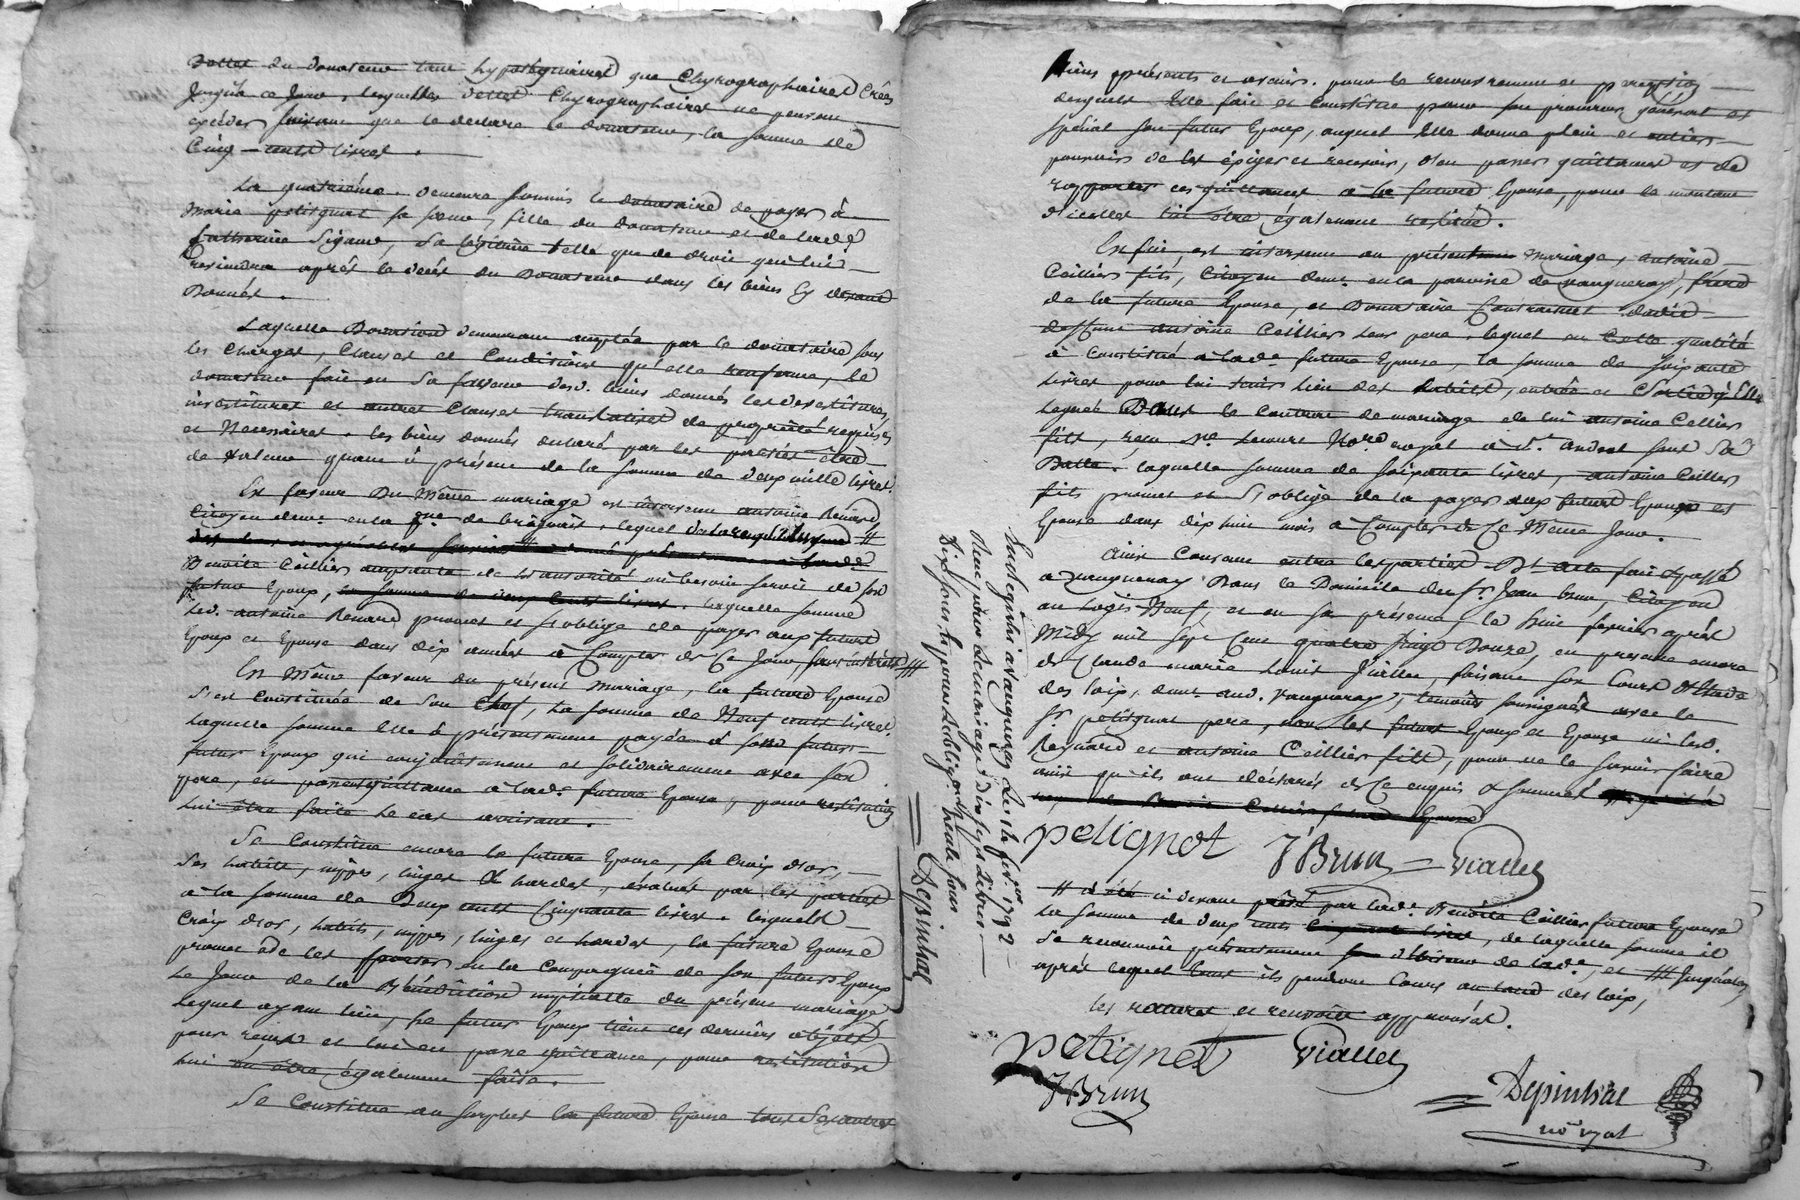 dettes du donateur tant hypothequaires que Chyrographaires Créés
Jusqu'a ce Jour, lesquelles dettes Chyrographaires ne peuvent
exceder suivant que le declare le donateur, la somme de
Cinq cents livres.
La quatrième. demeure soumis le donataire de payer à
Marie petignat sa sœur, fille du donateur et de lad.e
Catherine Sigaud, sa légitime telle que de droit qui lui
reviendra après le décès du Donateur dans les biens cy devant
Donnés.
Laquelle Donation demeurant acceptée par le donataire sous
les charges, Clauses et Conditions qu'elle renferme, le
donateur fait en sa faveur desd. biens donnés les devestitures,
investitures et autres Clauses translatives de propriété requises
et Necessaires. les biens donnés déclaré par les parties être
de valeur quant à présent de la somme de deux mille livres.
En faveur Du Même mariage est intervenu antoine Renard,
Citoyen demt. en la p.sse de brignais, lequel
Benoite Ceillier acceptante de l'autorité où besoin seroit de son
futur Epoux, la somme de deux cents livres. laquelle somme
led. antoine Renard promet et s'oblige de payer aux futurs
Epoux et Epouse dans dix années à Compter de Ce Jour sans intérêts ///
En Même faveur du présent mariage, la future Epouse
s'est constituée de son Chef, la somme de Neuf cents livres.
laquelle somme elle a présentement payée à son futur
futur Epoux qui conjointement et solidairement avec son
pere, en passe quittance à lad.e future Epouse, pour restitution
lui être faite le cas avenant.
Se Constitue encore la future Epouse, sa Croix d'or,
ses habits, nippes, linges & hardes, évalués par les parties
à la somme de Deux cents Cinquante livres. lesquels
Croix d'or, habits, nippes, linges et hardes, la future Epouse
promet de les porter en la Compagnie de son futur Epoux
le Jour de la Bénédiction nuptialle du présent mariage
lequel ayant lieu, le futur Epoux tient ces derniers objets
pour reçus et lui en passe quittance, pour restitution
lui en être également faite.
Se Constitue au surplus la future Epouse tous ses autres
Biens présents et avenir. pour le recouvrement et perception
desquels Elle fait et Constitue pour son procureur général et
spécial son futur Epoux, auquel Elle donne plein et entier
pouvoir de les exiger et recevoir, d'en passer quittances et de
rapporter ces quittances à la future Epouse, pour le montant
d'icelles lui être également restitué.
En fin, est intervenu au présent mariage, antoine
Ceillier fils, Citoyen demt. en la paroisse de vaugneray, frère
de la future Epouse, et Donataire Contractuel dudit
deffunt antoine Ceillier leur pere. lequel en Cette qualité
à Constitué à lad.e future Epouse, la somme de soixante
livres pour lui tenir lieu des habits, entrée et Sortie à Elle
legués Dans le Contrat de mariage de lui antoine Ceillier
fils, reçu M.e Lecourt Not.re royal à St. andeol sous la
Balle. laquelle somme de soixante livres, antoine Ceillier
fils promet et s'oblige de la payer aux futurs Epoux et
Epouse dans dix huit mois à Compter de Ce Même Jour.
Ainsi Convenu entre les parties. Dt. acte fait & passé
a vaugneray Dans le Domicile du Sr. Jean brun, Citoyen
au Logis Neuf, et en sa présence le huit fevrier après
Midy mil sept cent quatre vingt Douze, en presence encore
de Claude marie Louis Viallet, faisant son Cours d'Etude
des loix, demt. aud. vaugneray, temoins soussignés avec le
Sr. petignat pere, non les futurs Epoux et Epouse ni led.
Renard et antoine Ceillier fils, pour ne le savoir faire
ainsi qu'ils ont déclarés de Ce enquis & sommés
petignot JBrun Viallet
// a été ci devant prêté par lad.e Benoite Ceillier future Epouse
la somme de deux cents, de laquelle somme il
se reconnoit présentement débiteur de lad.e, et /// jusqu'alors
après lequel tems ils prendront Cours au taux des loix,
les ratures et renvois approuvés.
petignot Viallet
JBrun
Depinhac
no.re royal
Enregistré a vaugneray le 16 fevrier 1792
Reçu pour le mariage dix sept livres
Depinhac